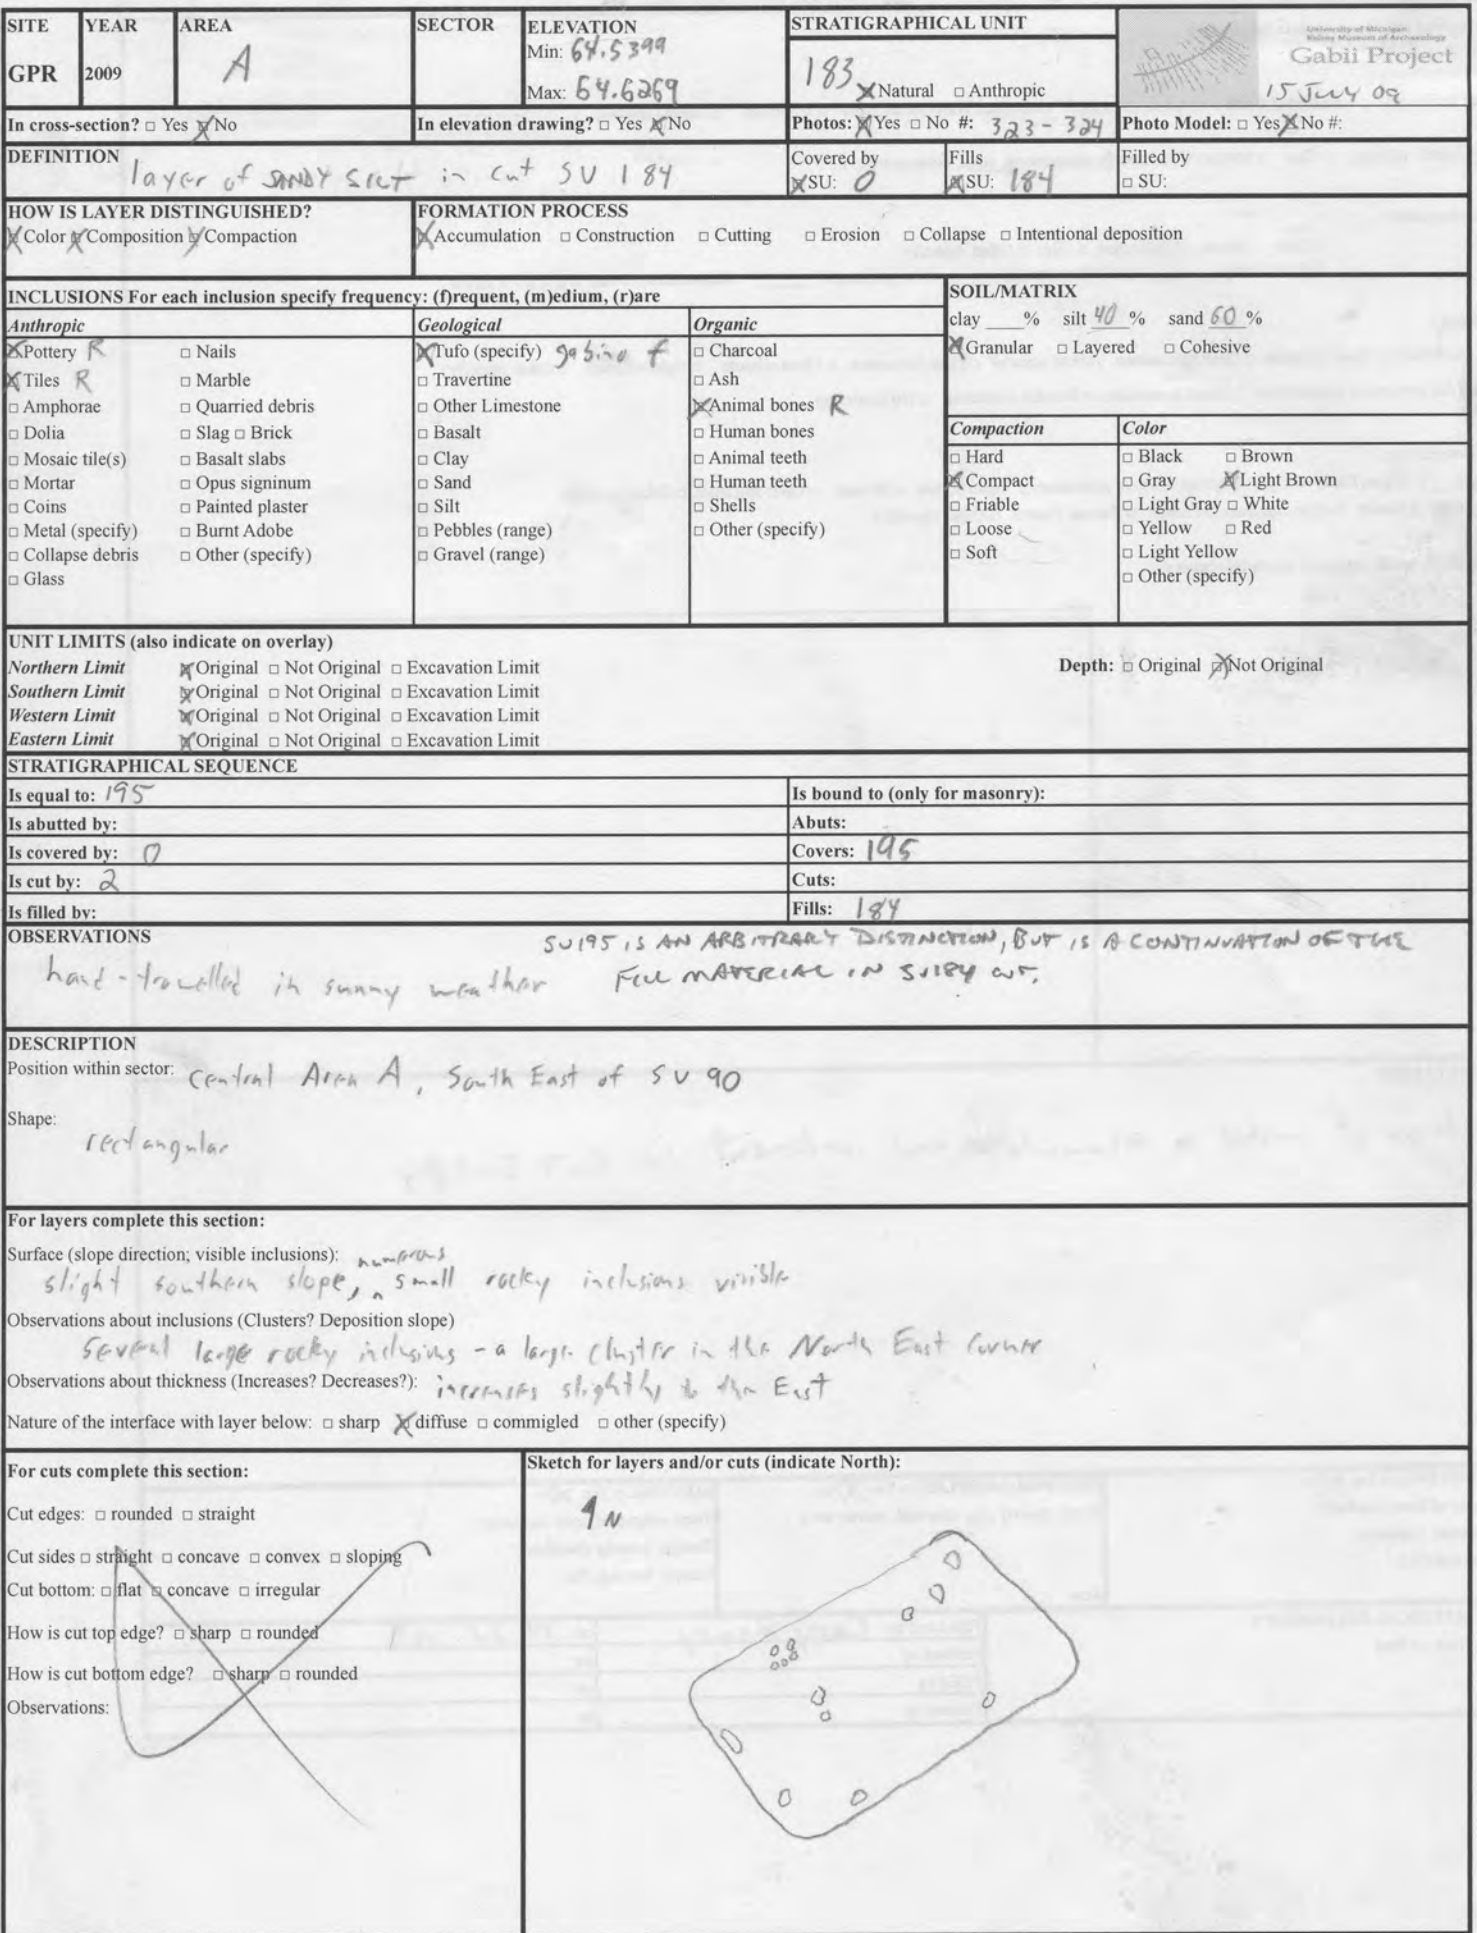 SITE YEAR AREA SECTOR ELEVATION STRATIGRAPHICAL UNIT
GPR 2009 A Min: 64.5399 Max: 64.6269 183 ☒ Natural □ Anthropic
University of Michigan
Kelsey Museum of Archaeology
Gabii Project
15 July 09
In cross-section? □ Yes ☒ No In elevation drawing? □ Yes ☒ No Photos: ☒ Yes □ No #: 323-324 Photo Model: □ Yes ☒ No #:
DEFINITION layer of SANDY SILT in cut SU 184 Covered by ☒ SU: 0 Fills ☒ SU: 184 Filled by □ SU:
HOW IS LAYER DISTINGUISHED?
☒ Color ☒ Composition ☒ Compaction
FORMATION PROCESS
☒ Accumulation □ Construction □ Cutting □ Erosion □ Collapse □ Intentional deposition
INCLUSIONS For each inclusion specify frequency: (f)requent, (m)edium, (r)are
Anthropic
☒ Pottery R □ Nails
☒ Tiles R □ Marble
□ Amphorae □ Quarried debris
□ Dolia □ Slag □ Brick
□ Mosaic tile(s) □ Basalt slabs
□ Mortar □ Opus signinum
□ Coins □ Painted plaster
□ Metal (specify) □ Burnt Adobe
□ Collapse debris □ Other (specify)
□ Glass
Geological
☒ Tufo (specify) gabino f
□ Travertine
□ Other Limestone
□ Basalt
□ Clay
□ Sand
□ Silt
□ Pebbles (range)
□ Gravel (range)
Organic
□ Charcoal
□ Ash
☒ Animal bones R
□ Human bones
□ Animal teeth
□ Human teeth
□ Shells
□ Other (specify)
SOIL/MATRIX
clay ___% silt 40 % sand 60 %
☒ Granular □ Layered □ Cohesive
Compaction
□ Hard
☒ Compact
□ Friable
□ Loose
□ Soft
Color
□ Black □ Brown
□ Gray ☒ Light Brown
□ Light Gray □ White
□ Yellow □ Red
□ Light Yellow
□ Other (specify)
UNIT LIMITS (also indicate on overlay)
Northern Limit ☒ Original □ Not Original □ Excavation Limit Depth: □ Original ☒ Not Original
Southern Limit ☒ Original □ Not Original □ Excavation Limit
Western Limit ☒ Original □ Not Original □ Excavation Limit
Eastern Limit ☒ Original □ Not Original □ Excavation Limit
STRATIGRAPHICAL SEQUENCE
Is equal to: 195 Is bound to (only for masonry):
Is abutted by: Abuts:
Is covered by: 0 Covers: 195
Is cut by: 2 Cuts:
Is filled by: Fills: 184
OBSERVATIONS
hand-trowelled in sunny weather
SU195 IS AN ARBITRARY DISTINCTION, BUT IS A CONTINUATION OF THE
FILL MATERIAL IN SU184 CUT.
DESCRIPTION
Position within sector: Central Area A, South East of SU 90
Shape:
rectangular
For layers complete this section:
Surface (slope direction; visible inclusions):
slight southern slope, numerous small rocky inclusions visible
Observations about inclusions (Clusters? Deposition slope)
several large rocky inclusions - a large cluster in the North East corner
Observations about thickness (Increases? Decreases?): increases slightly to the East
Nature of the interface with layer below: □ sharp ☒ diffuse □ commigled □ other (specify)
For cuts complete this section:
Cut edges: □ rounded □ straight
Cut sides □ straight □ concave □ convex □ sloping
Cut bottom: □ flat □ concave □ irregular
How is cut top edge? □ sharp □ rounded
How is cut bottom edge? □ sharp □ rounded
Observations:
Sketch for layers and/or cuts (indicate North):
N